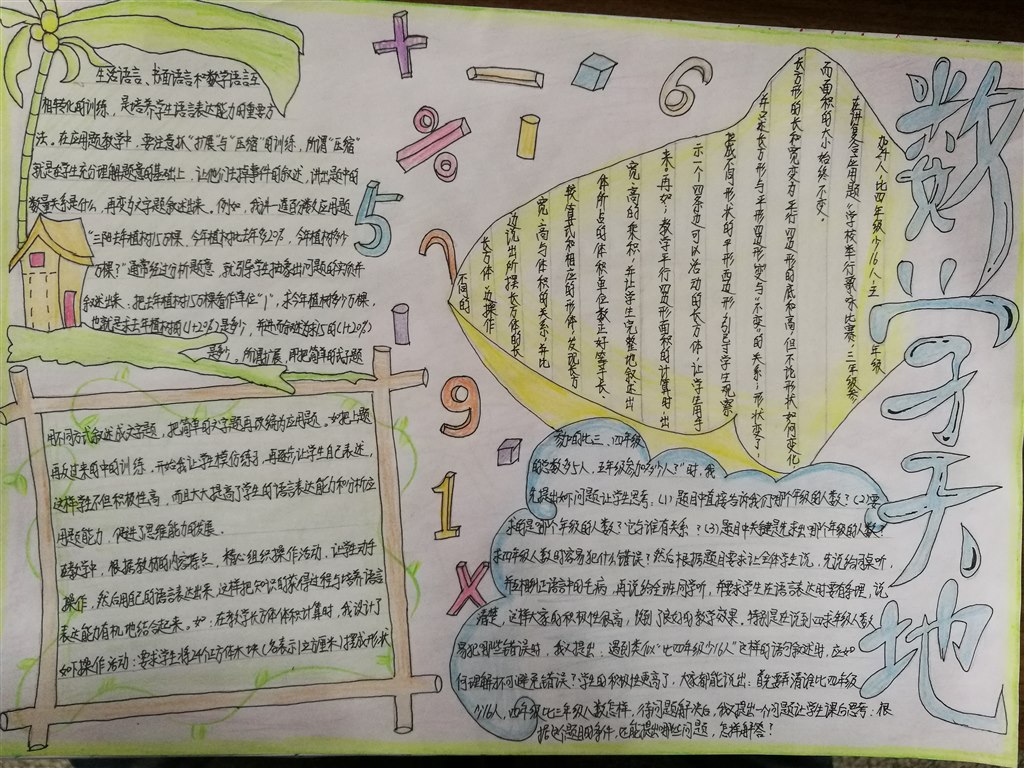 数学天地
生活语言、书面语言和数学语言互
相转化的训练，是培养学生语言表达能力的重要方
法。在应用题教学中，要注意抓"扩展"与"压缩"的训练，所谓"压缩"
就是在学生充分理解题意的基础上，让他们去掉事件的叙述，讲出题中的
数量关系是什么，再变为文字题叙述出来。例如，我由一道分数应用题
"三阳去年植树15万棵，今年植树比去年多20%，今年植树多少
万棵？"通常经过分析题意，就引导学生抽象出问题的实质并
叙述出来：把去年植树15万棵看作单位"1"，求今年植树多少万棵，
也就是求去年植树的(1+20%)是多少，并进而叙述为15的(1+20%)
是多少，所谓扩展，用把简单的文字题
用不同方式叙述成文字题，把简单的文字题再改编为应用题。如把上题
再反过来的中的训练，开始我让学生模仿练习，再逐步让学生自己表述，
这样学生不但积极性高，而且大大提高了学生的语言表达能力和分析应
用题能力，促进了思维能力的发展。
在教学中，根据教材的内容难点，精心组织操作活动，让学生动手
操作，然后用自己的语言表达出来，这样把知识的获得过程与培养语言
表达能力有机地结合起来。如：在教学长方体体积计算时，我设计了
如下操作活动：要求学生将24个正方体木块(各表示1立方厘米)摆成形状
不同的
长方体，边操作
边说出所摆长方体的长、
宽、高与体积的关系，并比
较算式和相应的形体，发现长方
体所占的体积单位数正好等于长、
宽、高的乘积，并让学生完整地叙述出
来。再如：教学平行四边形面积的计算时，出
示一个四条边可以活动的长方体，让学生用手
拉成不同形状的平形四边形，引导学生观察
并议论长方形与平形四边形"变"与"不变"的关系：形状变了，
长方形的长和宽变为平行四边形的底和高，但不论形状如何变化
而面积的大小始终不变。
在讲复合应用题"学校举行趣味比赛，三年级参
加24人，比四年级少16人，五年级
参加的比三、四年级
的总数多5人，五年级参加多少人？"时，我
先提出如下问题让学生思考：(1)题目中直接告诉我们哪个年级的人数？(2)要
求的是哪个年级的人数？它与谁有关系？(3)题目中关键是先求出哪个年级的人数？
求四年级人数时容易犯什么错误？然后根据题目要求让全体学生说，先说给同桌听，
并互相纠正语言中的毛病，再说给全班同学听，并要求学生在语言表达时要有条理，说
清楚，这样大家的积极性很高，收到了很好的教学效果，特别是在说到四求年级人数
易犯哪些错误时，我又提出：遇到类似"比四年级少16人"这样的语句叙述时，应如
何理解不可避免错误？学生的积极性更高了，大家都能说出：首先要弄清谁比四年级
少16人，四年级比三年级人数怎样，待问题解决后，我又提出一个问题让学生课后思考：根
据这个题目的条件，还能提出哪些问题，怎样解答？
+
−
%
6
5
?
9
1
×